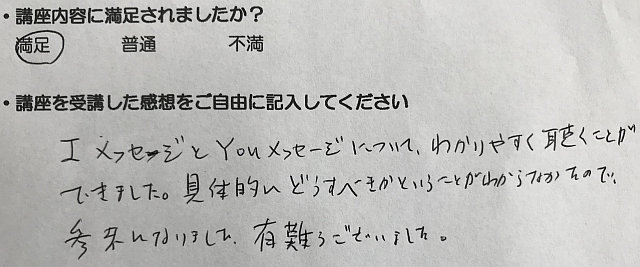 ・講座内容に満足されましたか？
満足 普通 不満
・講座を受講した感想をご自由に記入してください
I メッセージと Youメッセージについて、わかりやすく聴くことが
できました。具体的にどうすべきかということがわからなかたので、
参考になりました。有難うございました。